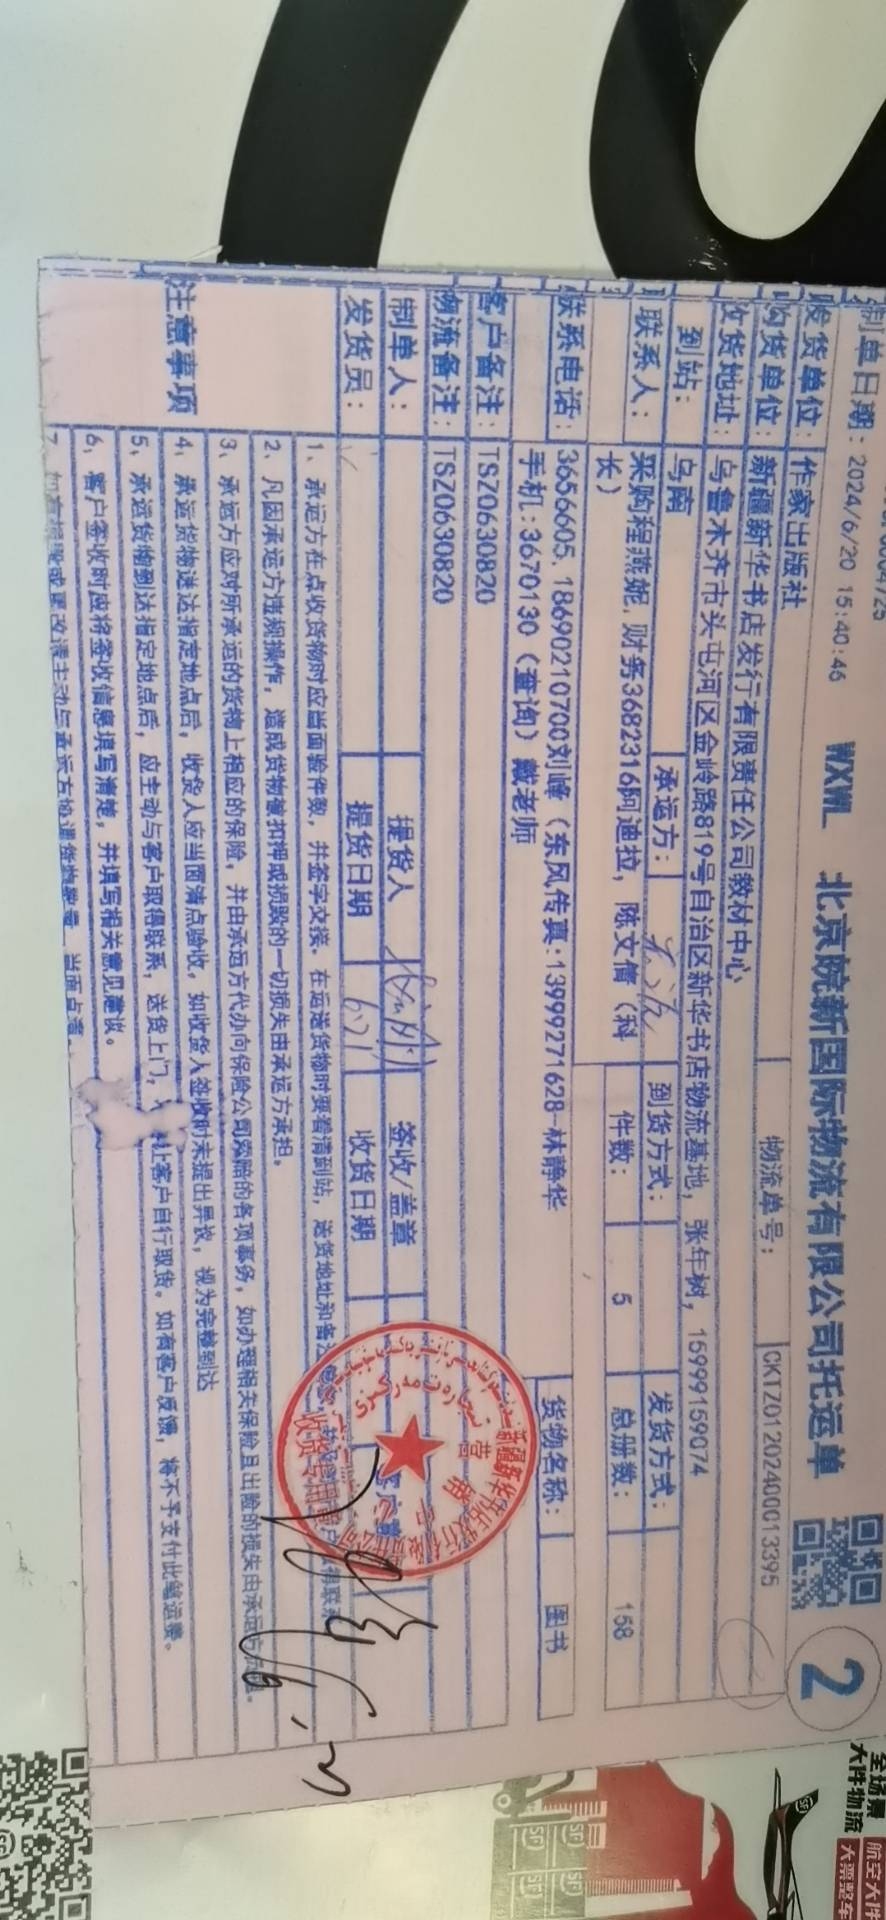 制单日期：2024/6/20 15:40:46
WXWL 北京皖新国际物流有限公司托运单
2
发货单位：作家出版社
物流单号：CKTZ01202400013395
购货单位：新疆新华书店发行有限责任公司教材中心
收货地址：乌鲁木齐市头屯河区金岭路819号自治区新华书店物流基地，张年树，15999159074
到站：乌南 承运方： 到货方式： 发货方式：
联系人：采购程燕妮，财务3682316阿迪拉，陈文倩（科长）
件数：5 总册数：158
联系电话：3656605，18690210700刘峰（东风传真：13999271628-林静华
手机：3670130（查询）戴老师
货物名称：图书
客户备注：TSZ0630820
物流备注：TSZ0630820
制单人： 提货人 签收/盖章
发货员： 提货日期 收货日期
注意事项
1、承运方在点收货物时应当面验件数，并签字交接。在运送货物时要看清到站，送货地址和备注
2、凡因承运方违规操作，造成货物被扣押或损毁的一切损失由承运方承担。
3、承运方应对所承运的货物上相应的保险，并由承运方代办向保险公司索赔的各项事务，如办理相关保险且出险的损失由承运方
4、承运货物送达指定地点后，收货人应当面清点验收。如收货人签收时未提出异议，视为完整到达
5、承运货物到达指定地点后，应主动与客户取得联系，送货上门，让客户自行取货。如有客户反馈，将不予支付此笔运费。
6、客户签收时应将签收信息填写清楚，并填写相关意见建议。
收货专用章
全场景
大件物流
航空大件
大票整车
SF